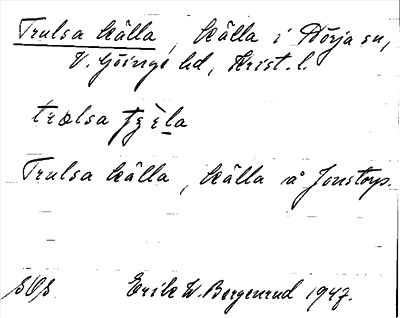 Trulsa källa, källa i Norja sn,
V. Göinge hd, Krist. l.
trælsa
Trulsa källa, källa å Jonstorp.
SOS Erik W. Bergenrud 1947.